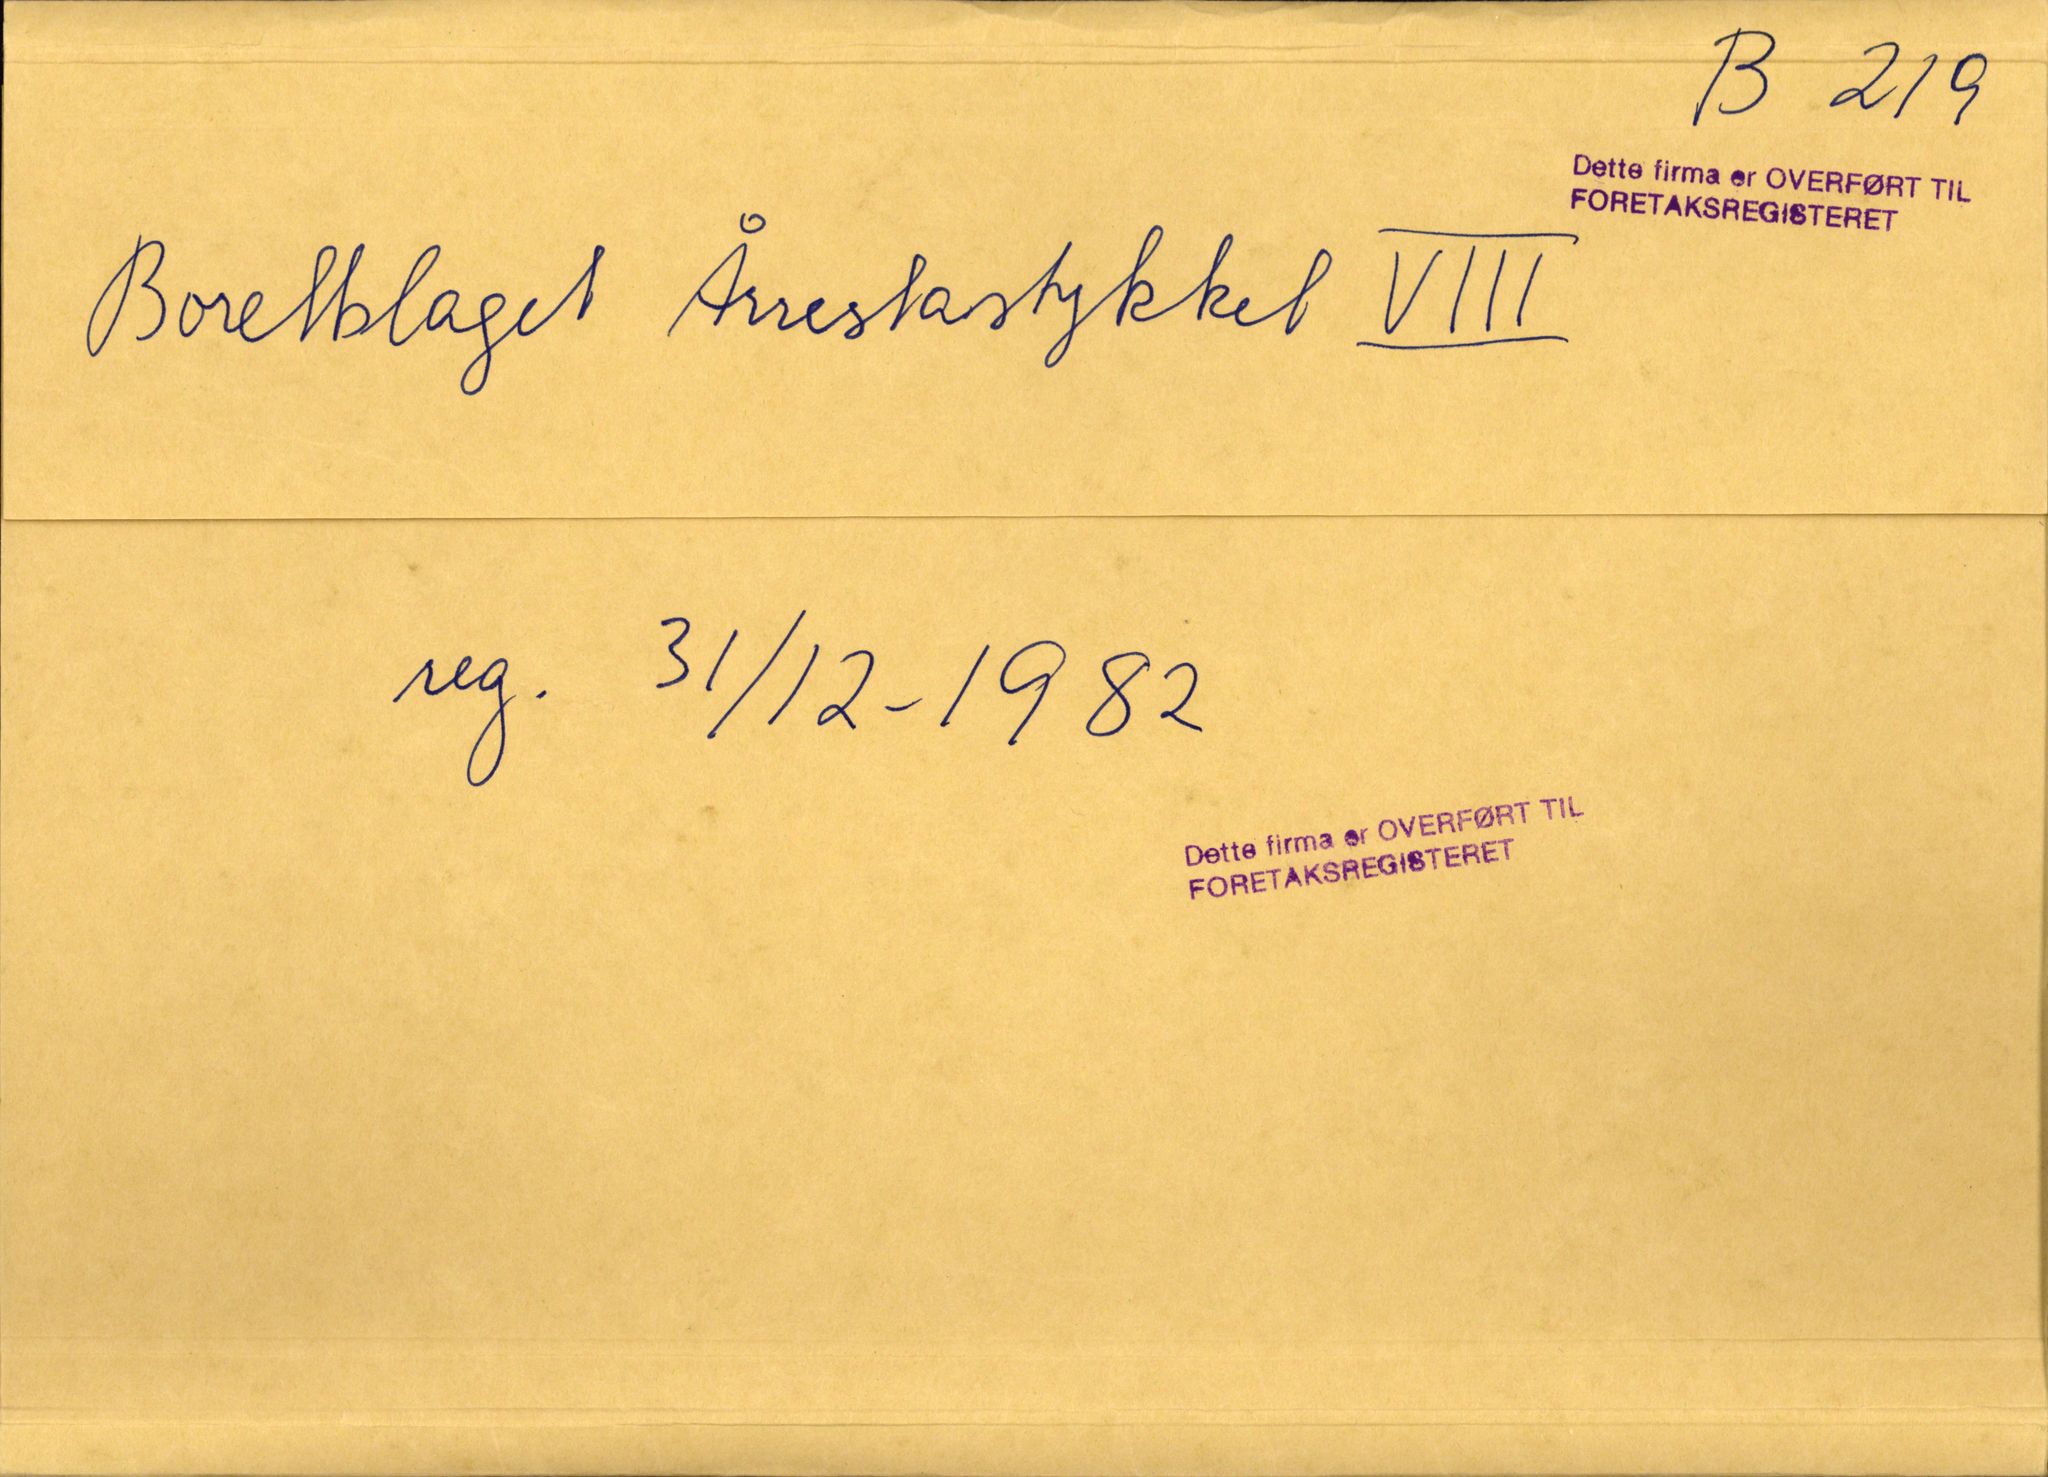 B 219
Dette firma er OVERFØRT TIL
FORETAKSREGISTERET
Borettslaget Årrestastykket VIII
reg. 31/12-1982
Dette firma er OVERFØRT TIL
FORETAKSREGISTERET